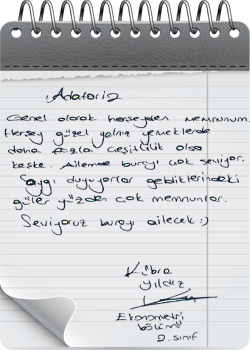 Adatoriz
Genel olarak herşeyden memnunum.
Herşey güzel yalnız yemeklerde
daha fazla çeşitlilik olsa
keşke. Ailemde burayı çok seviyor.
Saygı duyuyorlar geldiklerindeki
güler yüzden çok memnunlar.
Seviyoruz burayı ailecek :)
Kübra
Yıldız
Ekonometri
bölümü
2. sınıf